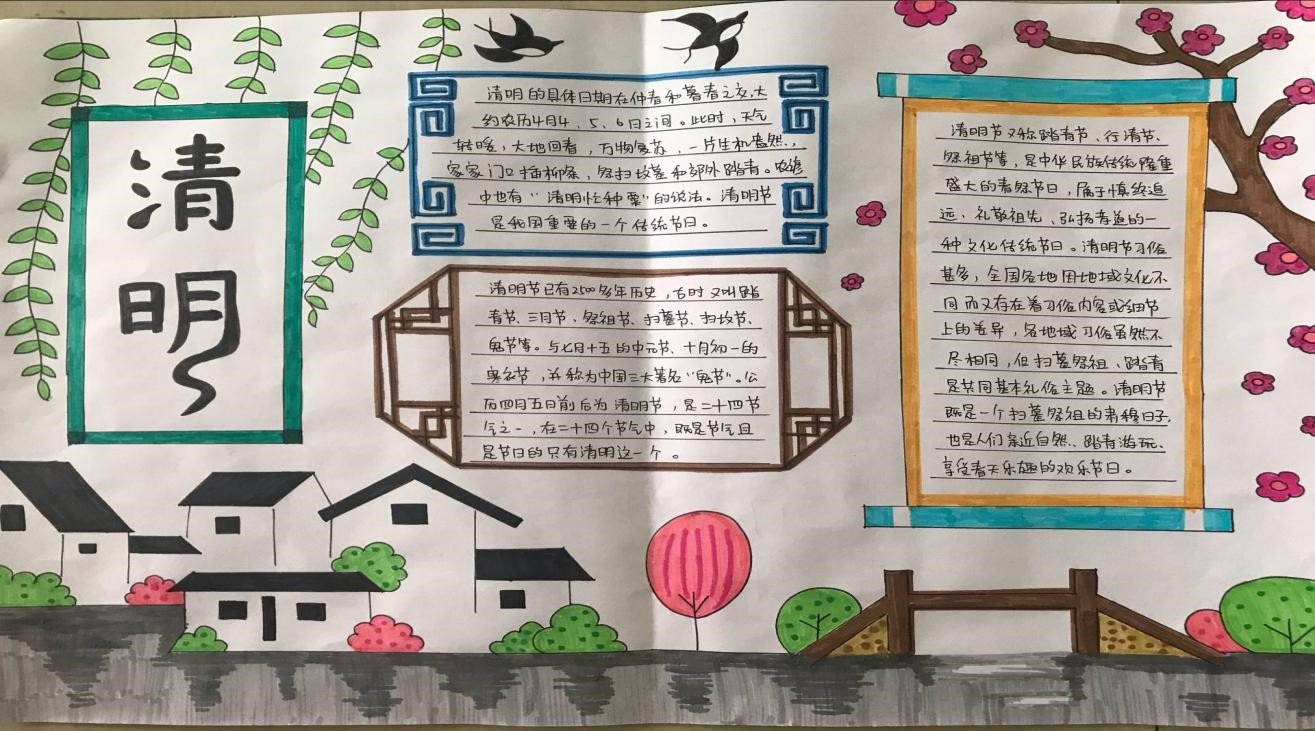 清
明
清明的具体日期在仲春和暮春之交,大
约农历4月4、5、6日之间。此时,天气
转暖,大地回春,万物复苏,一片生机盎然,
家家门口插柳条,祭扫坟墓和郊外踏青。农谚
中也有“清明忙种粟”的说法。清明节
是我国重要的一个传统节日。
清明节已有2500多年历史,古时又叫踏
青节、三月节、祭祖节、扫墓节、扫坟节、
鬼节等。与七月十五的中元节、十月初一的
寒衣节,并称为中国三大著名“鬼节”。公
历四月五日前后为清明节,是二十四节
气之一,在二十四个节气中,既是节气且
是节日的只有清明这一个。
清明节又称踏青节、行清节、
祭祖节等,是中华民族传统隆重
盛大的春祭节日,属于慎终追
远、礼敬祖先、弘扬孝道的一
种文化传统节日。清明节习俗
甚多,全国各地因地域文化不
同而又存在着习俗内容或细节
上的差异,各地域习俗虽然不
尽相同,但扫墓祭祖、踏青
是共同基本礼俗主题。清明节
既是一个扫墓祭祖的肃穆日子,
也是人们亲近自然、踏青游玩、
享受春天乐趣的欢乐节日。